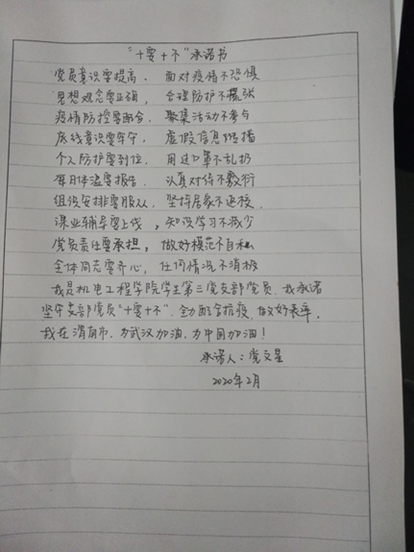 “十要十不”承诺书
党员意识要提高、面对疫情不恐惧
思想观念要正确，合理防护不慌张
疫情防控要配合、聚集活动不参与
底线意识要牢守，虚假信息不传播
个人防护要到位、用过口罩不乱扔
每日体温要报告、认真对待不敷衍
组织安排要服从、坚持居家不返校、
课业辅导要上线，知识学习不减少
党员责任要承担，做好模范不自私
全体同志要齐心，任何情况不消极
我是机电工程学院学生第三党支部党员、我承诺
坚守支部党员“十要十不”全力配合抗疫、做好表率、
我在渭南市、为武汉加油、为中国加油！
承诺人：党文星
2020年2月